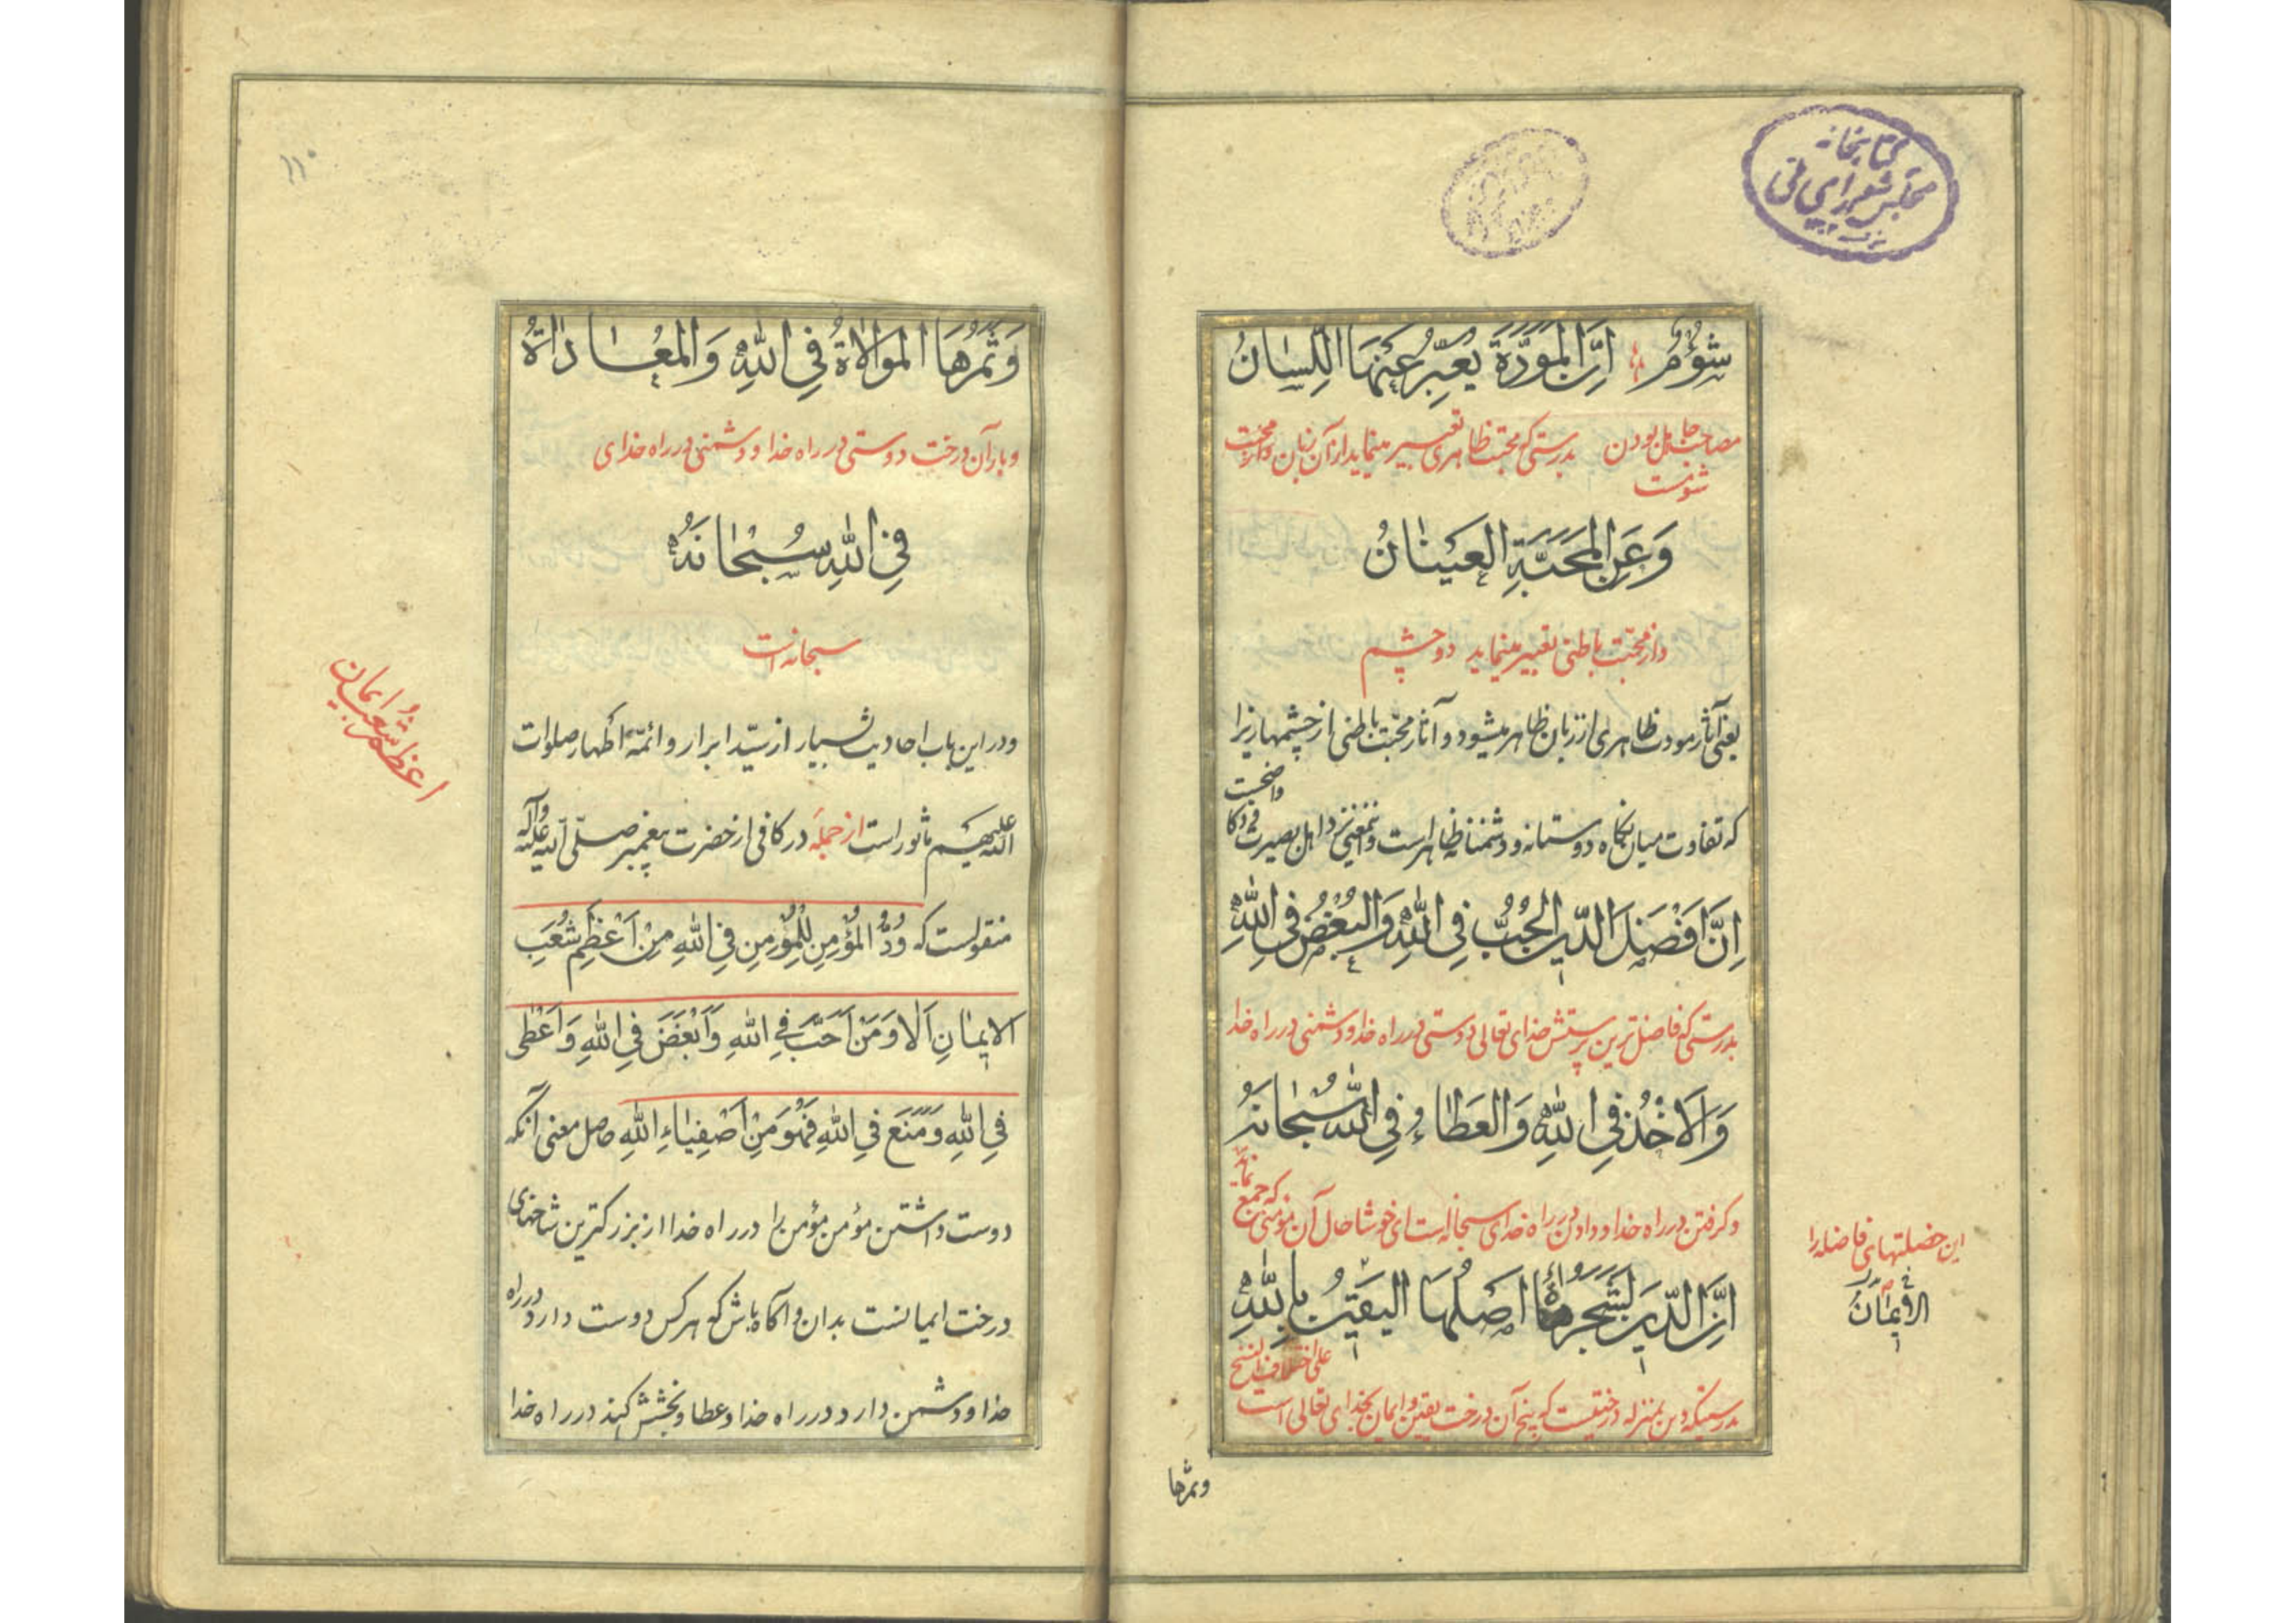 کتابخانه
مجلس شورای ملی
شُؤْمٌ اِنَّ الْمَوَدَّةَ یُعَبِّرُ عَنْهَا اللِّسَانُ
مصاحب جاهل بودن بدرستی که محبت ظاهری تعبیر مینماید از آن زبان
شومست
وَعَنِ الْمَحَبَّةِ الْعَیْنَانُ
و از محبّت باطنی تعبیر مینماید دو چشم
یعنی آثار مودت ظاهری از زبان ظاهر میشود و آثار محبّت باطنی از چشمها زیرا
که تفاوت میان نگاه دوستانه و دشمنانه ظاهر است و اینمعنی نزد اهل بصیرت و ذکا
واضحست
اِنَّ اَفْضَلَ الدّینِ الْحُبُّ فِی اللّٰهِ وَالْبُغْضُ فِی اللّٰهِ
بدرستی که فاضل ترین پرستش خدای تعالی دوستی در راه خدا و دشمنی در راه خدا
وَالْاَخْذُ فِی اللّٰهِ وَالْعَطَاءُ فِی اللّٰهِ سُبْحَانَهُ
و گرفتن در راه خدا و دادن در راه خدای سبحانه است ای خوشا حال آن مؤمنی که جمع
نماید
این خصلتهای فاضله را
اِنَّ الدّینَ لَشَجَرَةٌ اَصْلُهَا الْیَقینُ بِاللّٰهِ
الْاِیمَانُ
علی اختلاف النسخ
بدرستیکه دین بمنزله درختیست که بیخ آن درخت یقین و ایمان بخدای تعالی است
وثمرها
۱۱۰
وَثَمَرُهَا الْمُوَالَاةُ فِی اللّٰهِ وَالْمُعَادَاةُ
و بار آن درخت دوستی در راه خدا و دشمنی در راه خدای
فِی اللّٰهِ سُبْحَانَهُ
سبحانه است
و در این باب احادیث بسیار از سیّد ابرار و ائمّهٔ اطهار صلوات
اللّه علیهم مأثور است از جمله در کافی از حضرت پیغمبر صلّی اللّه علیه وآله
منقولست که وُدُّ الْمُؤْمِنِ لِلْمُؤْمِنِ فِی اللّٰهِ مِنْ اَعْظَمِ شُعَبِ
الْاِیمَانِ اَلَا وَمَنْ اَحَبَّ فِی اللّٰهِ وَاَبْغَضَ فِی اللّٰهِ وَاَعْطٰی
فِی اللّٰهِ وَمَنَعَ فِی اللّٰهِ فَهُوَ مِنْ اَصْفِیَاءِ اللّٰهِ حاصل معنی آنکه
دوست داشتن مؤمن مؤمن را در راه خدا از بزرگترین شاخهای
درخت ایمانست بدان و آگاه باش که هر کس دوست دارد در راه
خدا و دشمن دارد در راه خدا و عطا و بخشش کند در راه خدا
اعظم شعب ایمان